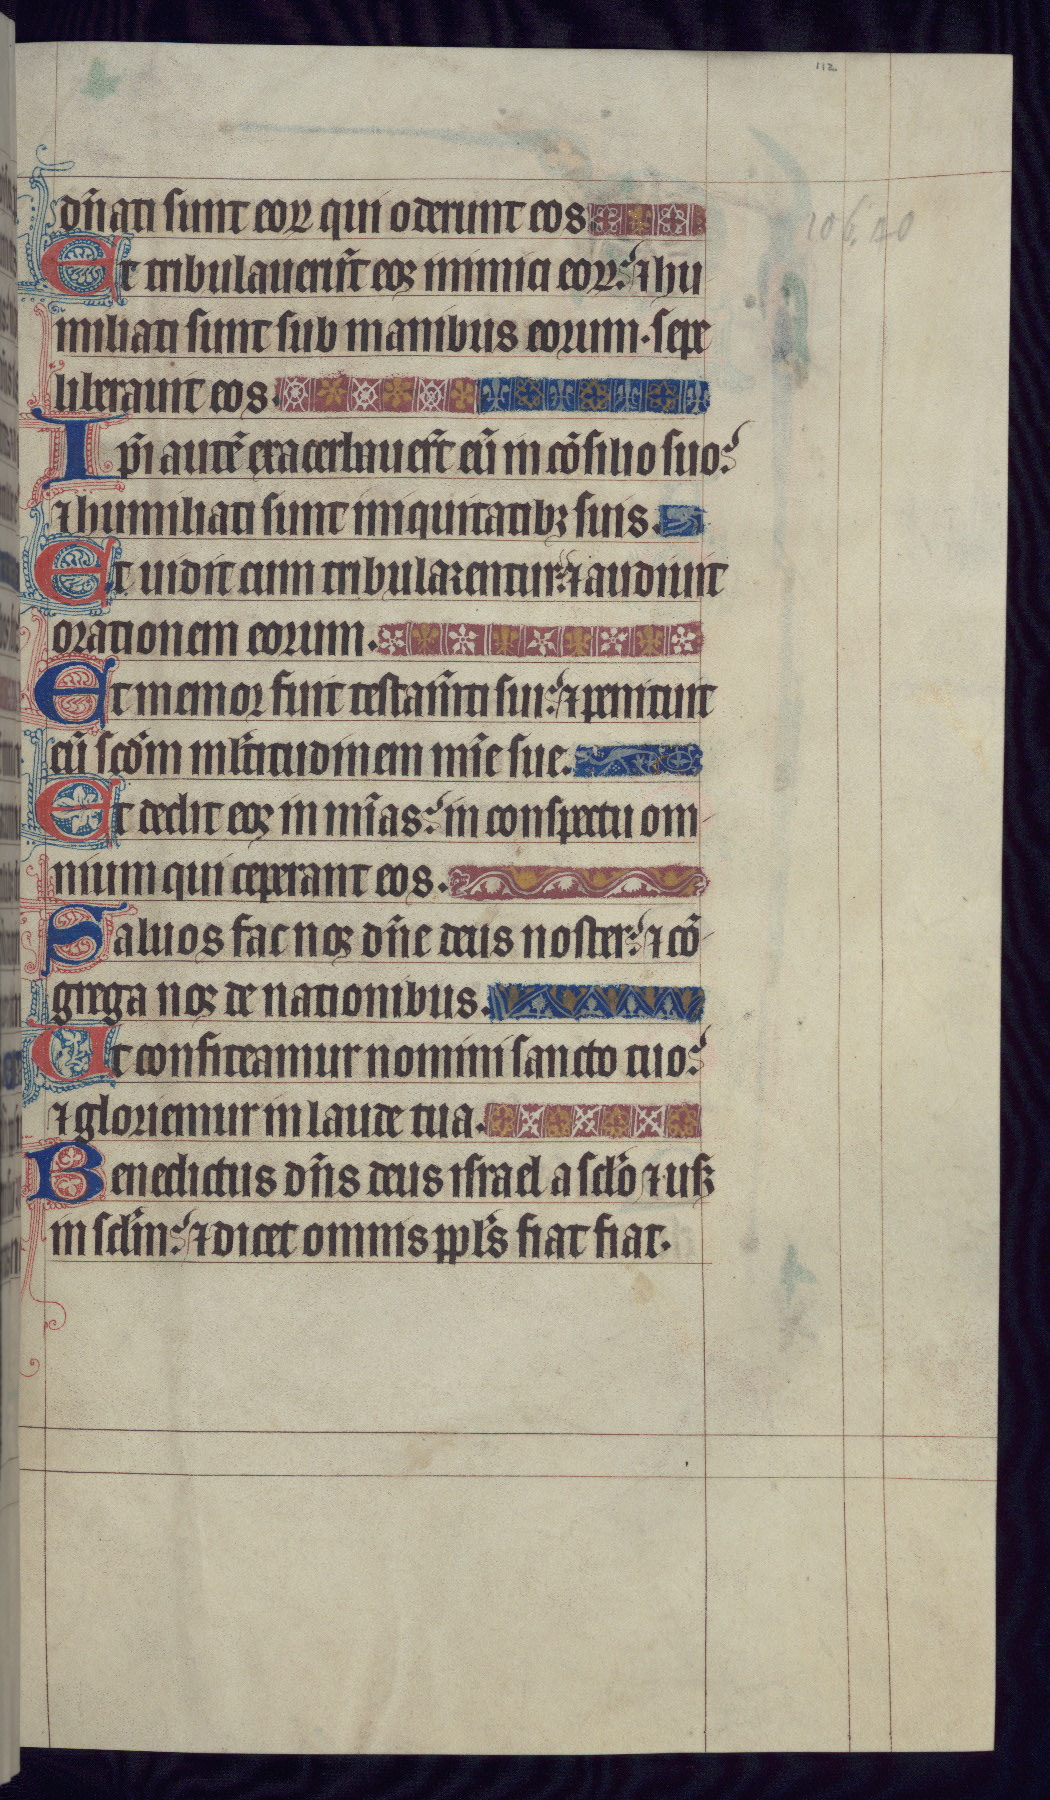 112
106. 20
dn̄ati sunt eoꝝ qui oderunt eos
Et tribulauerūt eoꝫ inimici eoꝝ: ⁊ hu
miliati sunt sub manibus eorum. sepe
liberauit eos.
Ip̄i autē exacerbauer̄t eū in cōsilio suo:
⁊ humiliati sunt iniquitatibꝫ suis.
Et uidit cum tribularentur: ⁊ audiuit
orationem eorum.
Et memor fuit testam̄ti sui: ⁊ penituit
eū scd̄m ml̄titudinem mīe sue.
Et dedit eoꝫ in mīas: in conspectu om
nium qui ceperant eos.
Saluos fac noꝫ dn̄e deus noster: ⁊ cō
grega noꝫ de nationibus.
Ut confiteamur nomini sancto tuo:
⁊ gloriemur in laude tua.
Benedictus dn̄s deus israel a scl̄o ⁊ usꝫ
in scl̄m: ⁊ dicet omnis ppl̄s fiat fiat.